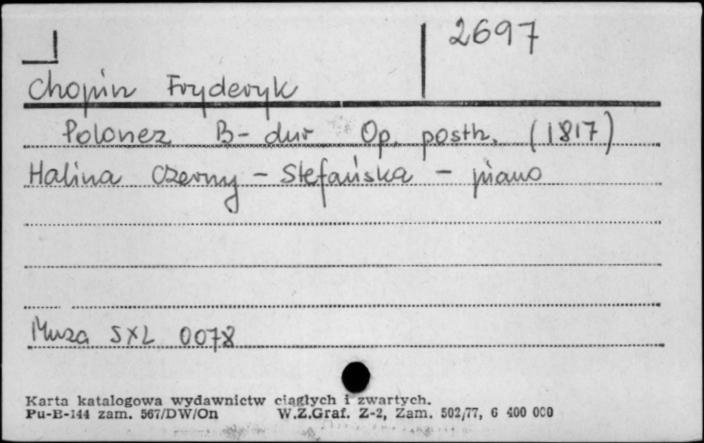 2697
Chopin Fryderyk
Polonez B-dur Op. posth. (1817)
Halina Czerny - Stefańska - piano
Muza SXL 0078
Karta katalogowa wydawnictw ciągłych i zwartych.
Pu-B-144 zam. 567/DW/On W.Z.Graf. Z-2, Zam. 502/77, 6 400 000